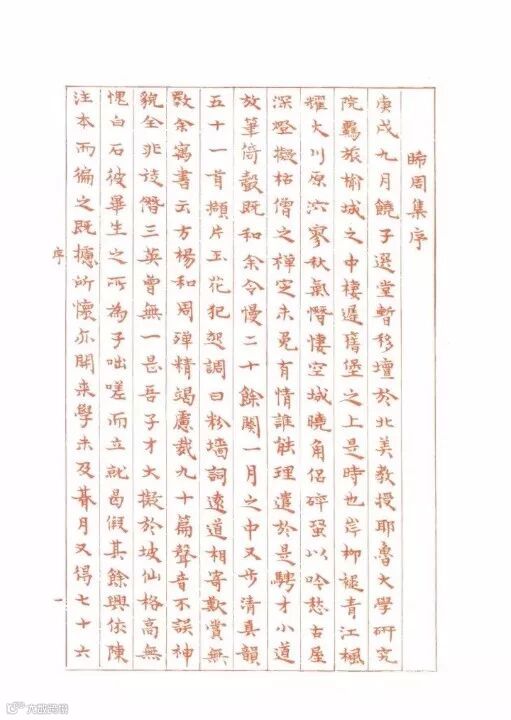 睎周集序
庚戌九月饒子選堂暫移壇於北美教授耶魯大學研究
院羈旅榆城之中棲遲舊堡之上是時也岸柳褪青江楓
耀火川原泬寥秋氣憯悽空城曉角侶碎蛩以吟愁古屋
深燈擬枯僧之禪定未免有情誰能理遣於是騁才小道
放筆倚聲既和余令慢二十餘闋一月之中又步清真韻
五十一首擷片玉花犯怨調曰粉墻詞遠道相寄歎賞無
斁余寓書云方楊和周殫精竭慮裁九十篇聲音不誤神
貌全非詅僭三英曾無一是吾子才大擬於坡仙格高無
愧白石彼畢生之所為子咄嗟而立就曷假其餘興依陳
注本而徧之既攄所懷亦開來學未及朞月又得七十六
序
一